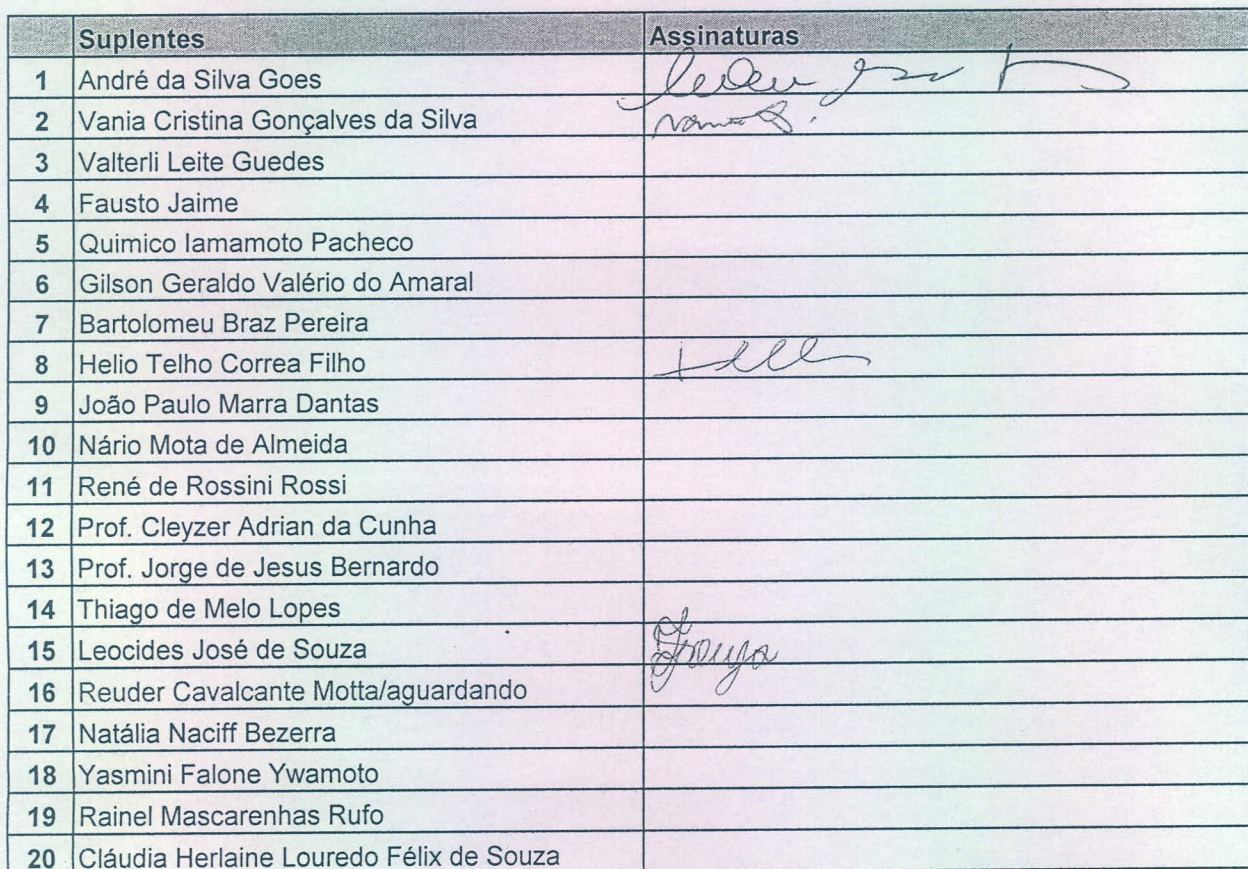 Suplentes Assinaturas
1 André da Silva Goes
2 Vania Cristina Gonçalves da Silva
3 Valterli Leite Guedes
4 Fausto Jaime
5 Quimico Iamamoto Pacheco
6 Gilson Geraldo Valério do Amaral
7 Bartolomeu Braz Pereira
8 Helio Telho Correa Filho
9 João Paulo Marra Dantas
10 Nário Mota de Almeida
11 René de Rossini Rossi
12 Prof. Cleyzer Adrian da Cunha
13 Prof. Jorge de Jesus Bernardo
14 Thiago de Melo Lopes
15 Leocides José de Souza
16 Reuder Cavalcante Motta/aguardando
17 Natália Naciff Bezerra
18 Yasmini Falone Ywamoto
19 Rainel Mascarenhas Rufo
20 Cláudia Herlaine Louredo Félix de Souza